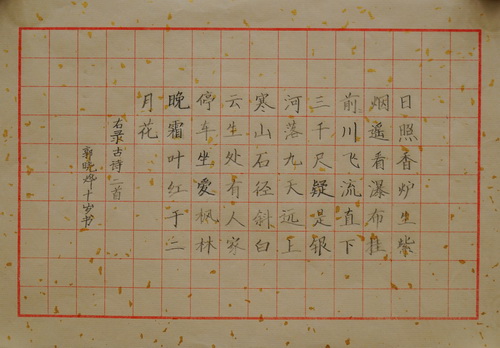 日照香炉生紫
烟遥看瀑布挂
前川飞流直下
三千尺疑是银
河落九天远上
寒山石径斜白
云生处有人家
停车坐爱枫林
晚霜叶红于二
月花
右录古诗二首
郭晓十岁书